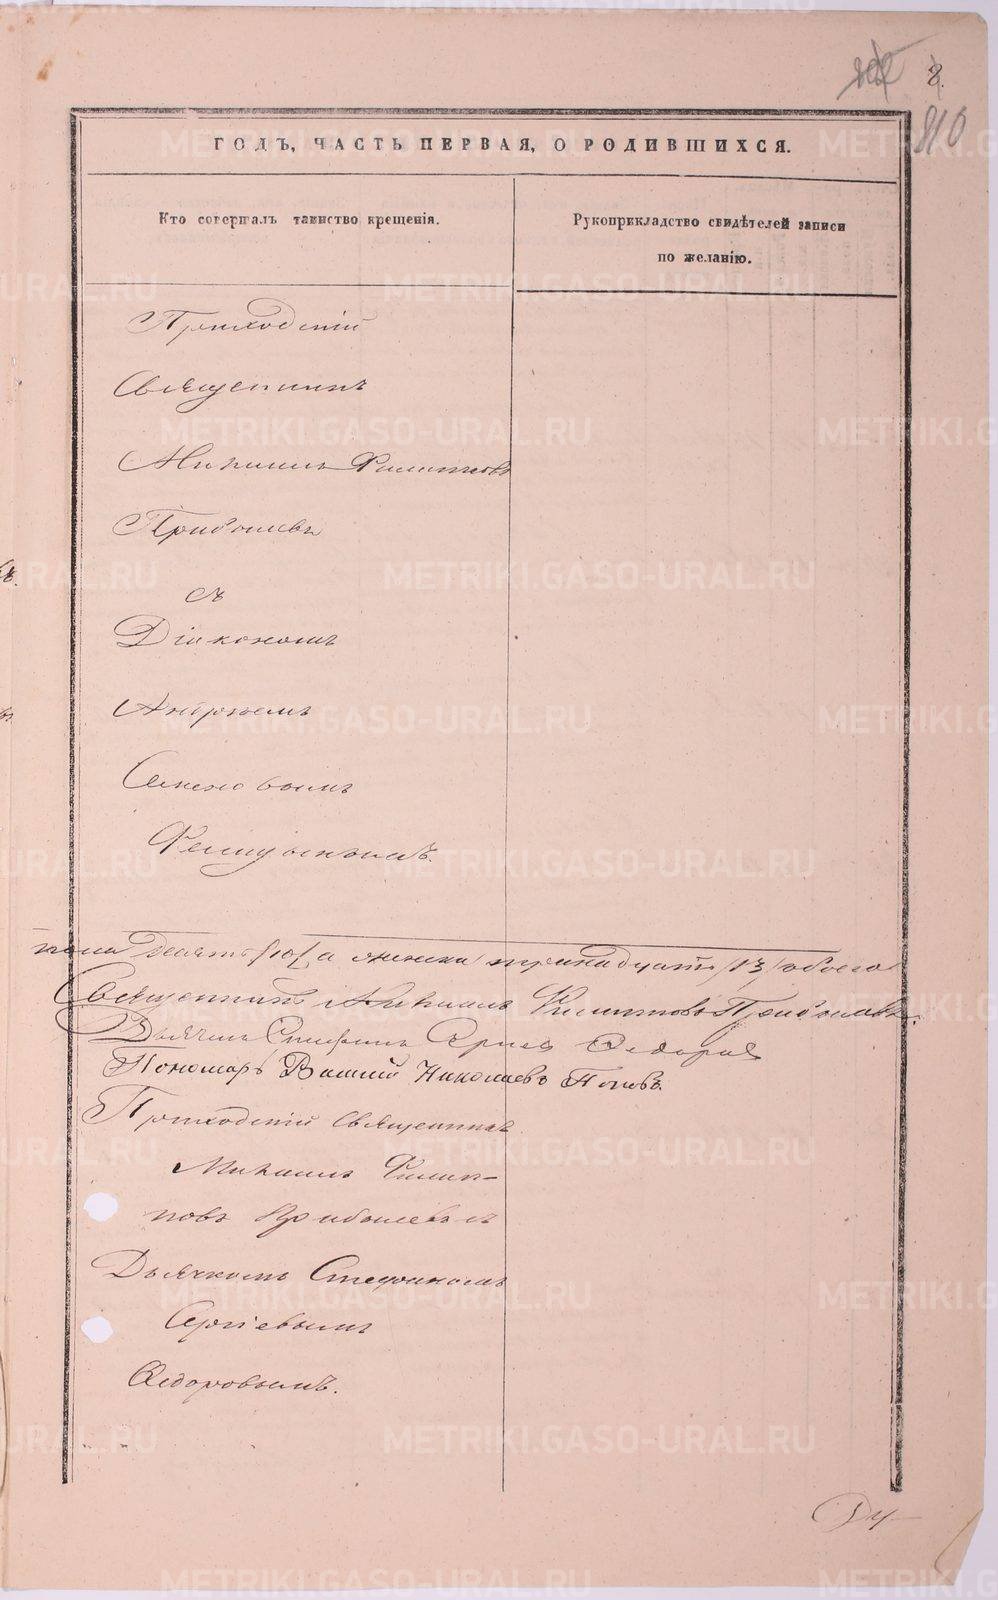 8.
810
ГОДЪ, ЧАСТЬ ПЕРВАЯ, О РОДИВШИХСЯ.
Кто совершалъ таинство крещенія.
Рукоприкладство свидѣтелей записи
по желанію.
Приходскій
Священникъ
Михаилъ Филипповъ
Прибылевъ
съ
Діакономъ
Андреемъ
Семеновымъ
пола десять /10/ а женска тринадцать /13/ обоего
Священникъ Михаилъ Филипповъ Прибылевъ.
Дьячекъ Стефанъ Сергіевъ Ѳедоровъ
Пономарь Василій Николаевъ Поповъ.
Приходскій Священникъ
Михаилъ Филип-
повъ Прибылевъ съ
Дьячкомъ Стефаномъ
Сергіевымъ
Ѳедоровымъ.
METRIKI.GASO-URAL.RU